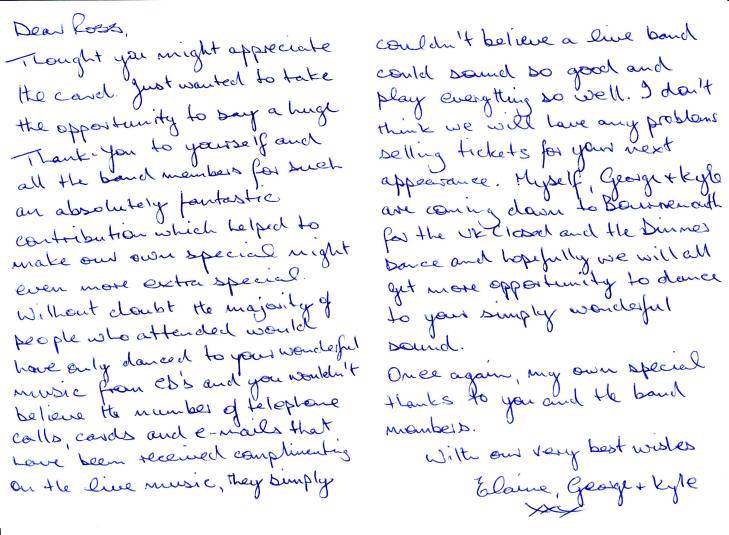 Dear Ross,
Thought you might appreciate
the card. Just wanted to take
the opportunity to say a huge
Thank-You to yourself and
all the band members for such
an absolutely fantastic
contribution which helped to
make our own special night
even more extra special.
Without doubt the majority of
people who attended would
have only danced to your wonderful
music from CD's and you wouldn't
believe the number of telephone
calls, cards and e-mails that
have been received complimenting
on the live music, they simply
couldn't believe a live band
could sound so good and
play everything so well. I don't
think we will have any problems
selling tickets for your next
appearance. Myself, George + Kyle
are coming down to Bournemouth
for the UK Closed and the Dinner
Dance and hopefully we will all
get more opportunity to dance
to your simply wonderful
sound.
Once again, my own special
thanks to you and the band
members.
With our very best wishes
Elaine, George + Kyle
xxx